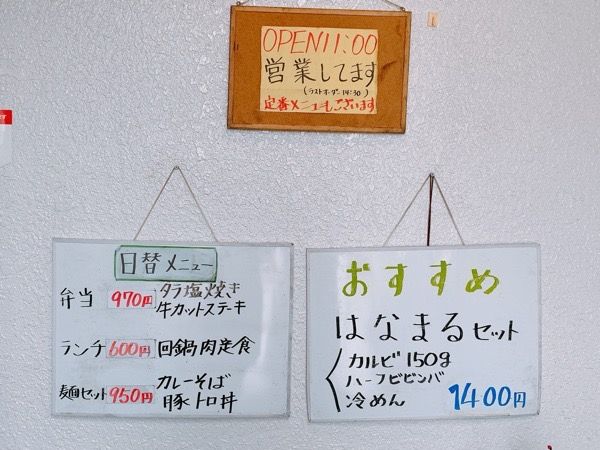 OPEN11:00
営業してます
(ラストオーダー 14:30)
定番メニューもございます
日替メニュー
弁当 970円 タラ塩焼き
牛カットステーキ
ランチ 600円 回鍋肉定食
麺セット 950円 カレーそば
豚トロ丼
おすすめ
はなまるセット
カルビ 150g
ハーフビビンバ
冷めん 1400円